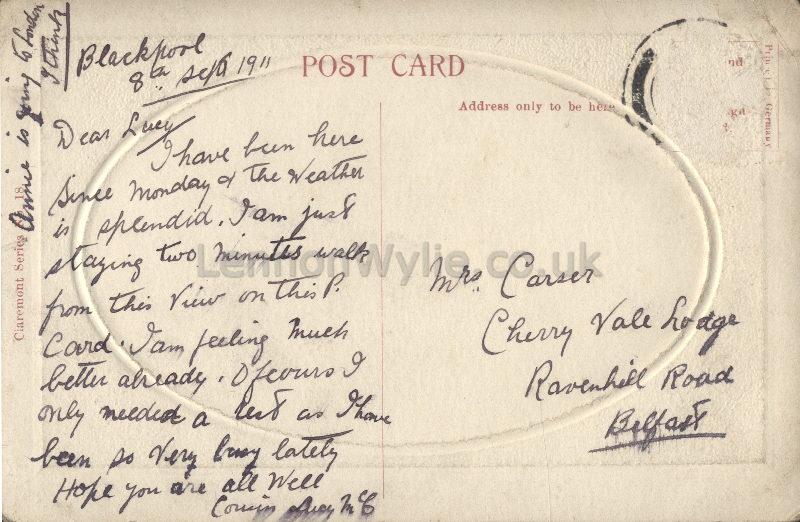 Annie is going to London
I think
Blackpool
8th Sept 1911
POST CARD
Address only to be here
nd
gd
Printed Germany
Claremont Series 18
Dear Lucy
I have been here
since Monday & the Weather
is splendid. I am just
staying two minutes walk
from this View on this P.
Card. I am feeling much
better already. Of cours I
only needed a rest as I have
been so very busy lately
Hope you are all Well
Cousin Lucy McC
Mrs. Carser
Cherry Vale Lodge
Ravenhill Road
Belfast
LennonWylie.co.uk